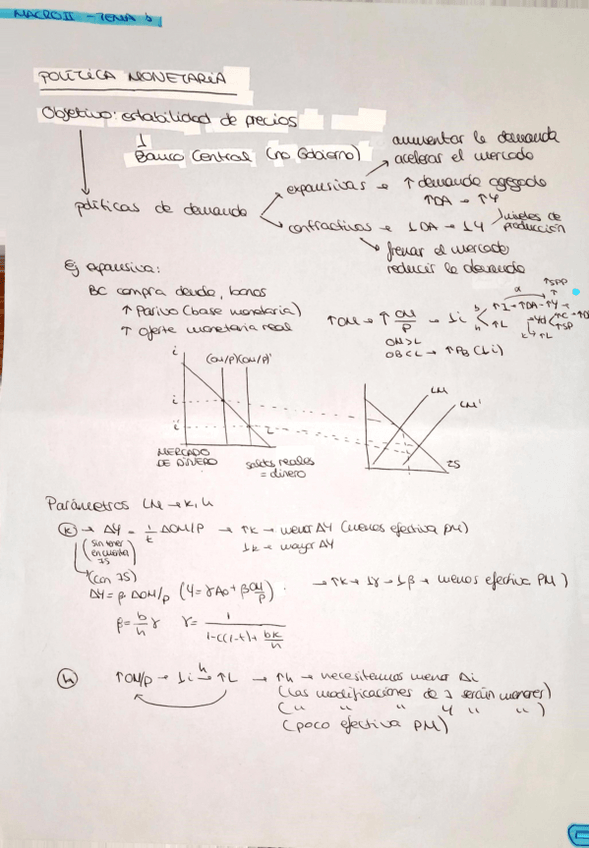 MACRO II - TEMA 6
POLÍTICA MONETARIA
Objetivo: estabilidad de precios
Banco Central (no Gobierno)
aumentar la demanda
acelerar el mercado
políticas de demanda
expansivas → ↑ demanda agregada
↑DA → ↑Y
contractivas → ↓DA → ↓Y
niveles de producción
frenar el mercado
reducir la demanda
Ej expansiva:
BC compra deuda, bonos
↑ Pasivo (base monetaria)
↑ oferta monetaria real
↑OM → ↑ OM/P → ↓i
b ↑I → ↑DA → ↑Y →
h ↑L
α ↑SPP
↑
Yd ↑C → ↑DA
↑SP
k → ↑L
OM>L
OB<L → ↑PB (↓i)
i (OM/P) (OM/P)'
i
i'
L
MERCADO DE DINERO
saldos reales = dinero
LM
LM'
IS
Parámetros LM → k, h
k → ΔY = 1/k ΔOM/P → ↑k → menor ΔY (menos efectiva PM)
↓k → mayor ΔY
(sin tener en cuenta IS)
(con IS)
ΔY = β ΔOM/P (Y = γA0 + β OM/P) → ↑k → ↓γ → ↓β → menos efectiva PM)
β = b/h γ γ = 1 / 1-c(1-t) + bk/h
h ↑OM/P → ↓i h→ ↑L → ↑h → necesitamos menor Δi
(las modificaciones de I serán menores)
(" " " Y " ")
(poco efectiva PM)